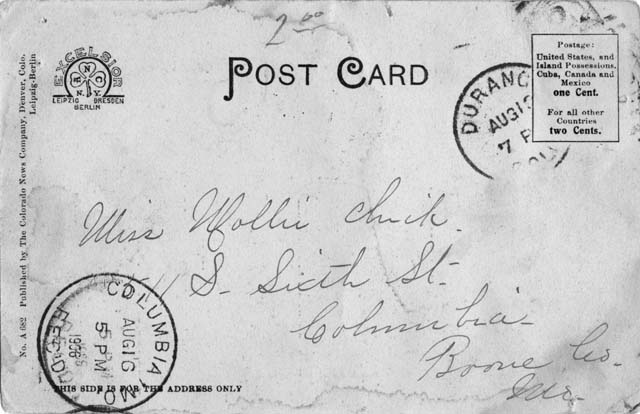 2.00
EXCELSIOR
N.
N.Y.
LEIPZIG DRESDEN
BERLIN
POST CARD
DURANG
AUG 13
7 P
Postage:
United States, and
Island Possessions,
Cuba, Canada and
Mexico
one Cent.
For all other
Countries
two Cents.
No. A 682 Published by The Colorado News Company, Denver, Colo.
Leipzig-Berlin
Miss Mollie Chick
511 S. Sixth St.
Columbia
Boone Co.
Mo.
COLUMBIA, MO.
AUG 16
5 PM
1906
REC'D
THIS SIDE IS FOR THE ADDRESS ONLY